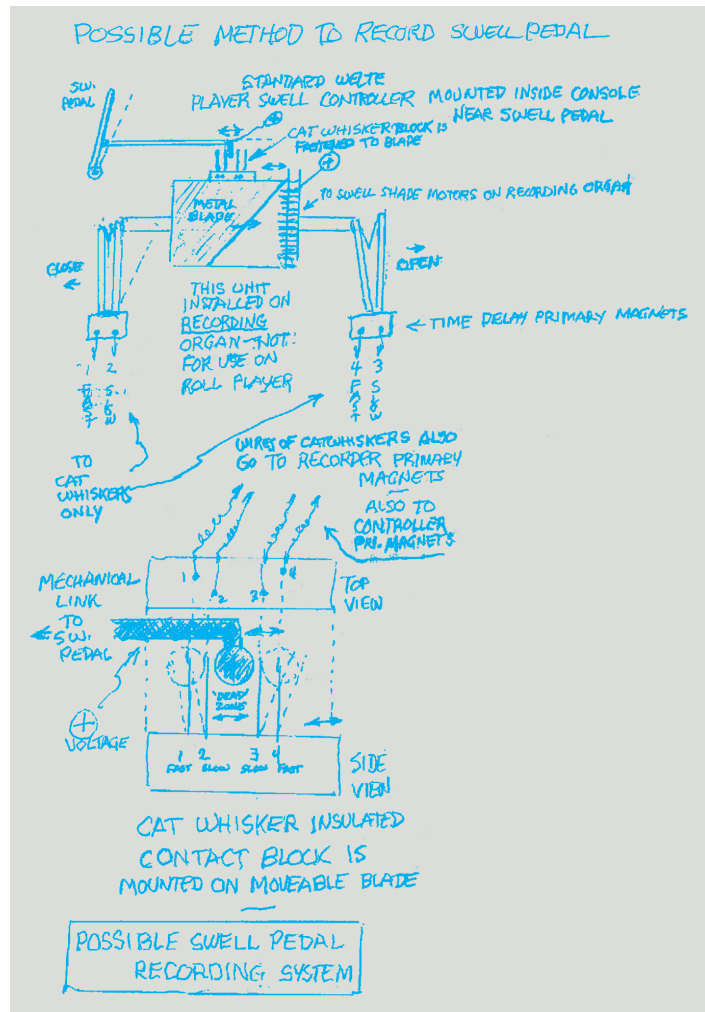 POSSIBLE METHOD TO RECORD SWELL PEDAL
SW.
PEDAL
STANDARD WELTE
PLAYER SWELL CONTROLLER MOUNTED INSIDE CONSOLE
NEAR SWELL PEDAL
+
CAT WHISKER BLOCK IS
FASTENED TO BLADE
+
METAL
BLADE
TO SWELL SHADE MOTORS ON RECORDING ORGAN
CLOSE
OPEN
THIS UNIT
INSTALLED ON
RECORDING
ORGAN-NOT
FOR USE ON
ROLL PLAYER
← TIME DELAY PRIMARY MAGNETS
1 2
FAST SLOW
4 3
FAST SLOW
TO
CAT
WHISKERS
ONLY
WIRES OF CATWHISKERS ALSO
GO TO RECORDER PRIMARY
MAGNETS
ALSO TO
CONTROLLER
PRI. MAGNETS
1 2 3 4
TOP
VIEW
MECHANICAL
LINK
TO
SW.
PEDAL
"DEAD"
ZONE
+
VOLTAGE
1 2 3 4
FAST SLOW SLOW FAST
SIDE
VIEW
CAT WHISKER INSULATED
CONTACT BLOCK IS
MOUNTED ON MOVEABLE BLADE
POSSIBLE SWELL PEDAL
RECORDING SYSTEM